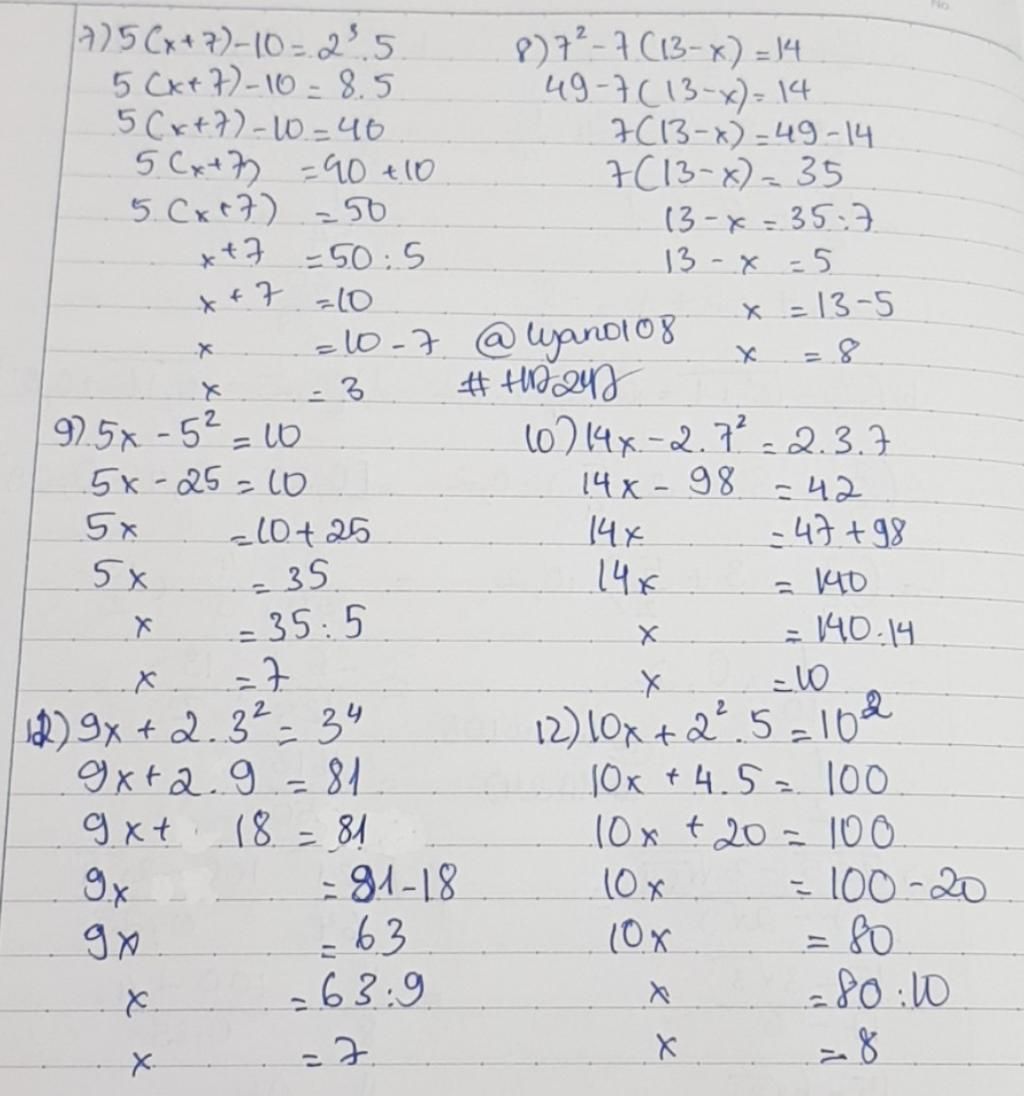 7) 5(x+7)-10=2³.5
5(x+7)-10=8.5
5(x+7)-10=40
5(x+7) =40+10
5(x+7) =50
x+7 =50:5
x+7 =10
x =10-7
x =3
8) 7²-7(13-x)=14
49-7(13-x)=14
7(13-x)=49-14
7(13-x)=35
13-x=35:7
13-x=5
x=13-5
x=8
@lyano108
#HD247
9) 5x-5²=10
5x-25=10
5x =10+25
5x =35
x =35:5
x =7
10) 14x-2.7²=2.3.7
14x-98=42
14x =47+98
14x =140
x =140:14
x =10
9x+2.3²=3⁴
9x+2.9=81
9x+18=81
9x =81-18
9x =63
x =63:9
x =7
12) 10x+2².5=10²
10x+4.5=100
10x+20=100
10x =100-20
10x =80
x =80:10
x =8